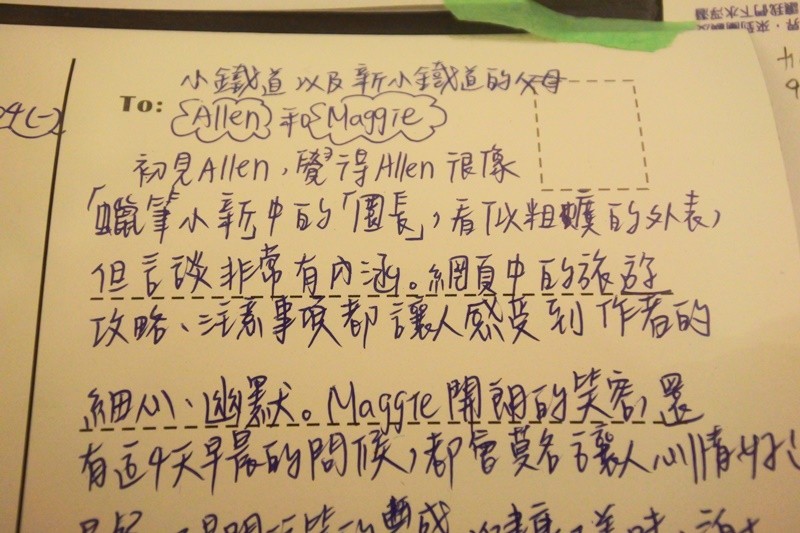 小鐵道以及新小鐵道的父母
To: Allen 和 Maggie
初見Allen,覺得Allen很像
「蠟筆小新」中的「園長」,看似粗獷的外表,
但言談非常有內涵。網頁中的旅遊
攻略、注意事項都讓人感受到作者的
細心、幽默。Maggie開朗的笑容,還
有這4天早晨的問候,都會莫名讓人心情好
讓我們下水浮潛